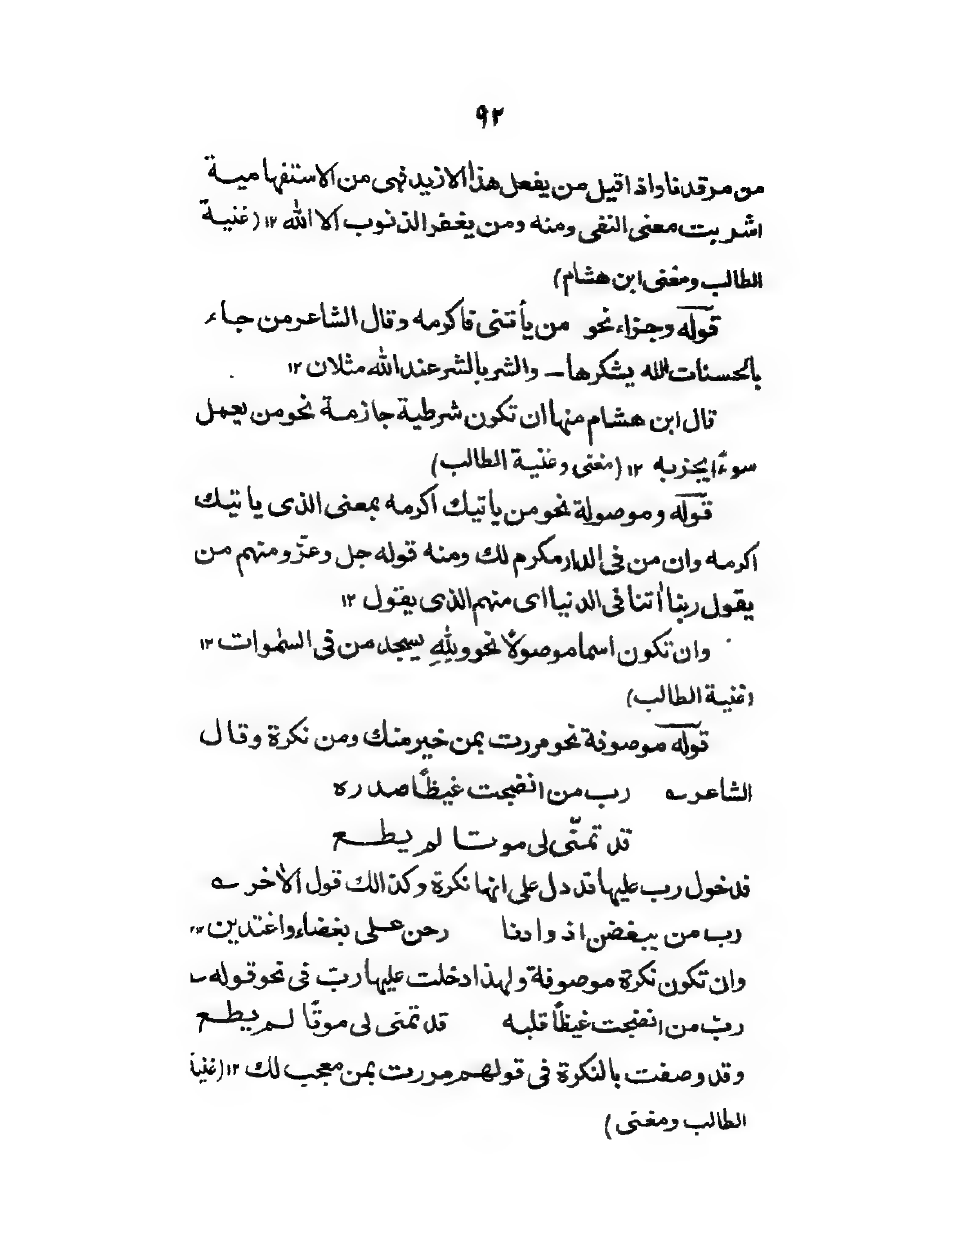 ٩٢
من مرقدنا واذا قيل من يفعل هذا الا زيد نهى من الاستفهامية
اشربت معنى النفى ومنه ومن يغفر الذنوب الا الله ١٢ (غنية
الطالب ومغنى ابن هشام)
قوله وجزاء نحو من يأتنى فاكرمه وقال الشاعر من جاء
بالحسنات الله يشكرها — والشر بالشر عند الله مثلان ١٢
قال ابن هشام منها ان تكون شرطية جازمة نحو من يعمل
سوءًا يجز به ١٢ (مغنى وغنية الطالب)
قوله وموصولة نحو من ياتيك اكرمه بمعنى الذى ياتيك
اكرمه وان من فى الدار مكرم لك ومنه قوله جل وعزّ ومنهم من
يقول ربنا اٰتنا فى الدنيا اى منهم الذى يقول ١٢
وان تكون اسما موصولًا نحو وللهِ يسجد من فى السمٰوات ١٢
(غنية الطالب)
قوله موصوفة نحو مررت بمن خير منك ومن نكرة وقال
الشاعر ؎ رب من انضجت غيظًا صدره
قد تمنّى لى موتا لم يطع
فدخول رب عليها قد دل على انها نكرة وكذالك قول الاٰخر ؎
رب من يبغض اذوادنا رحن على بغضاء واغتدين ١٢
وان تكون نكرة موصوفة ولهذا دخلت عليها ربّ فى نحو قوله ؎
ربّ من انضجت غيظًا قلبه قد تمنى لى موتًا لم يطع
وقد وصفت بالنكرة فى قولهم مررت بمن معجب لك ١٢ (غنية
الطالب ومغنى)